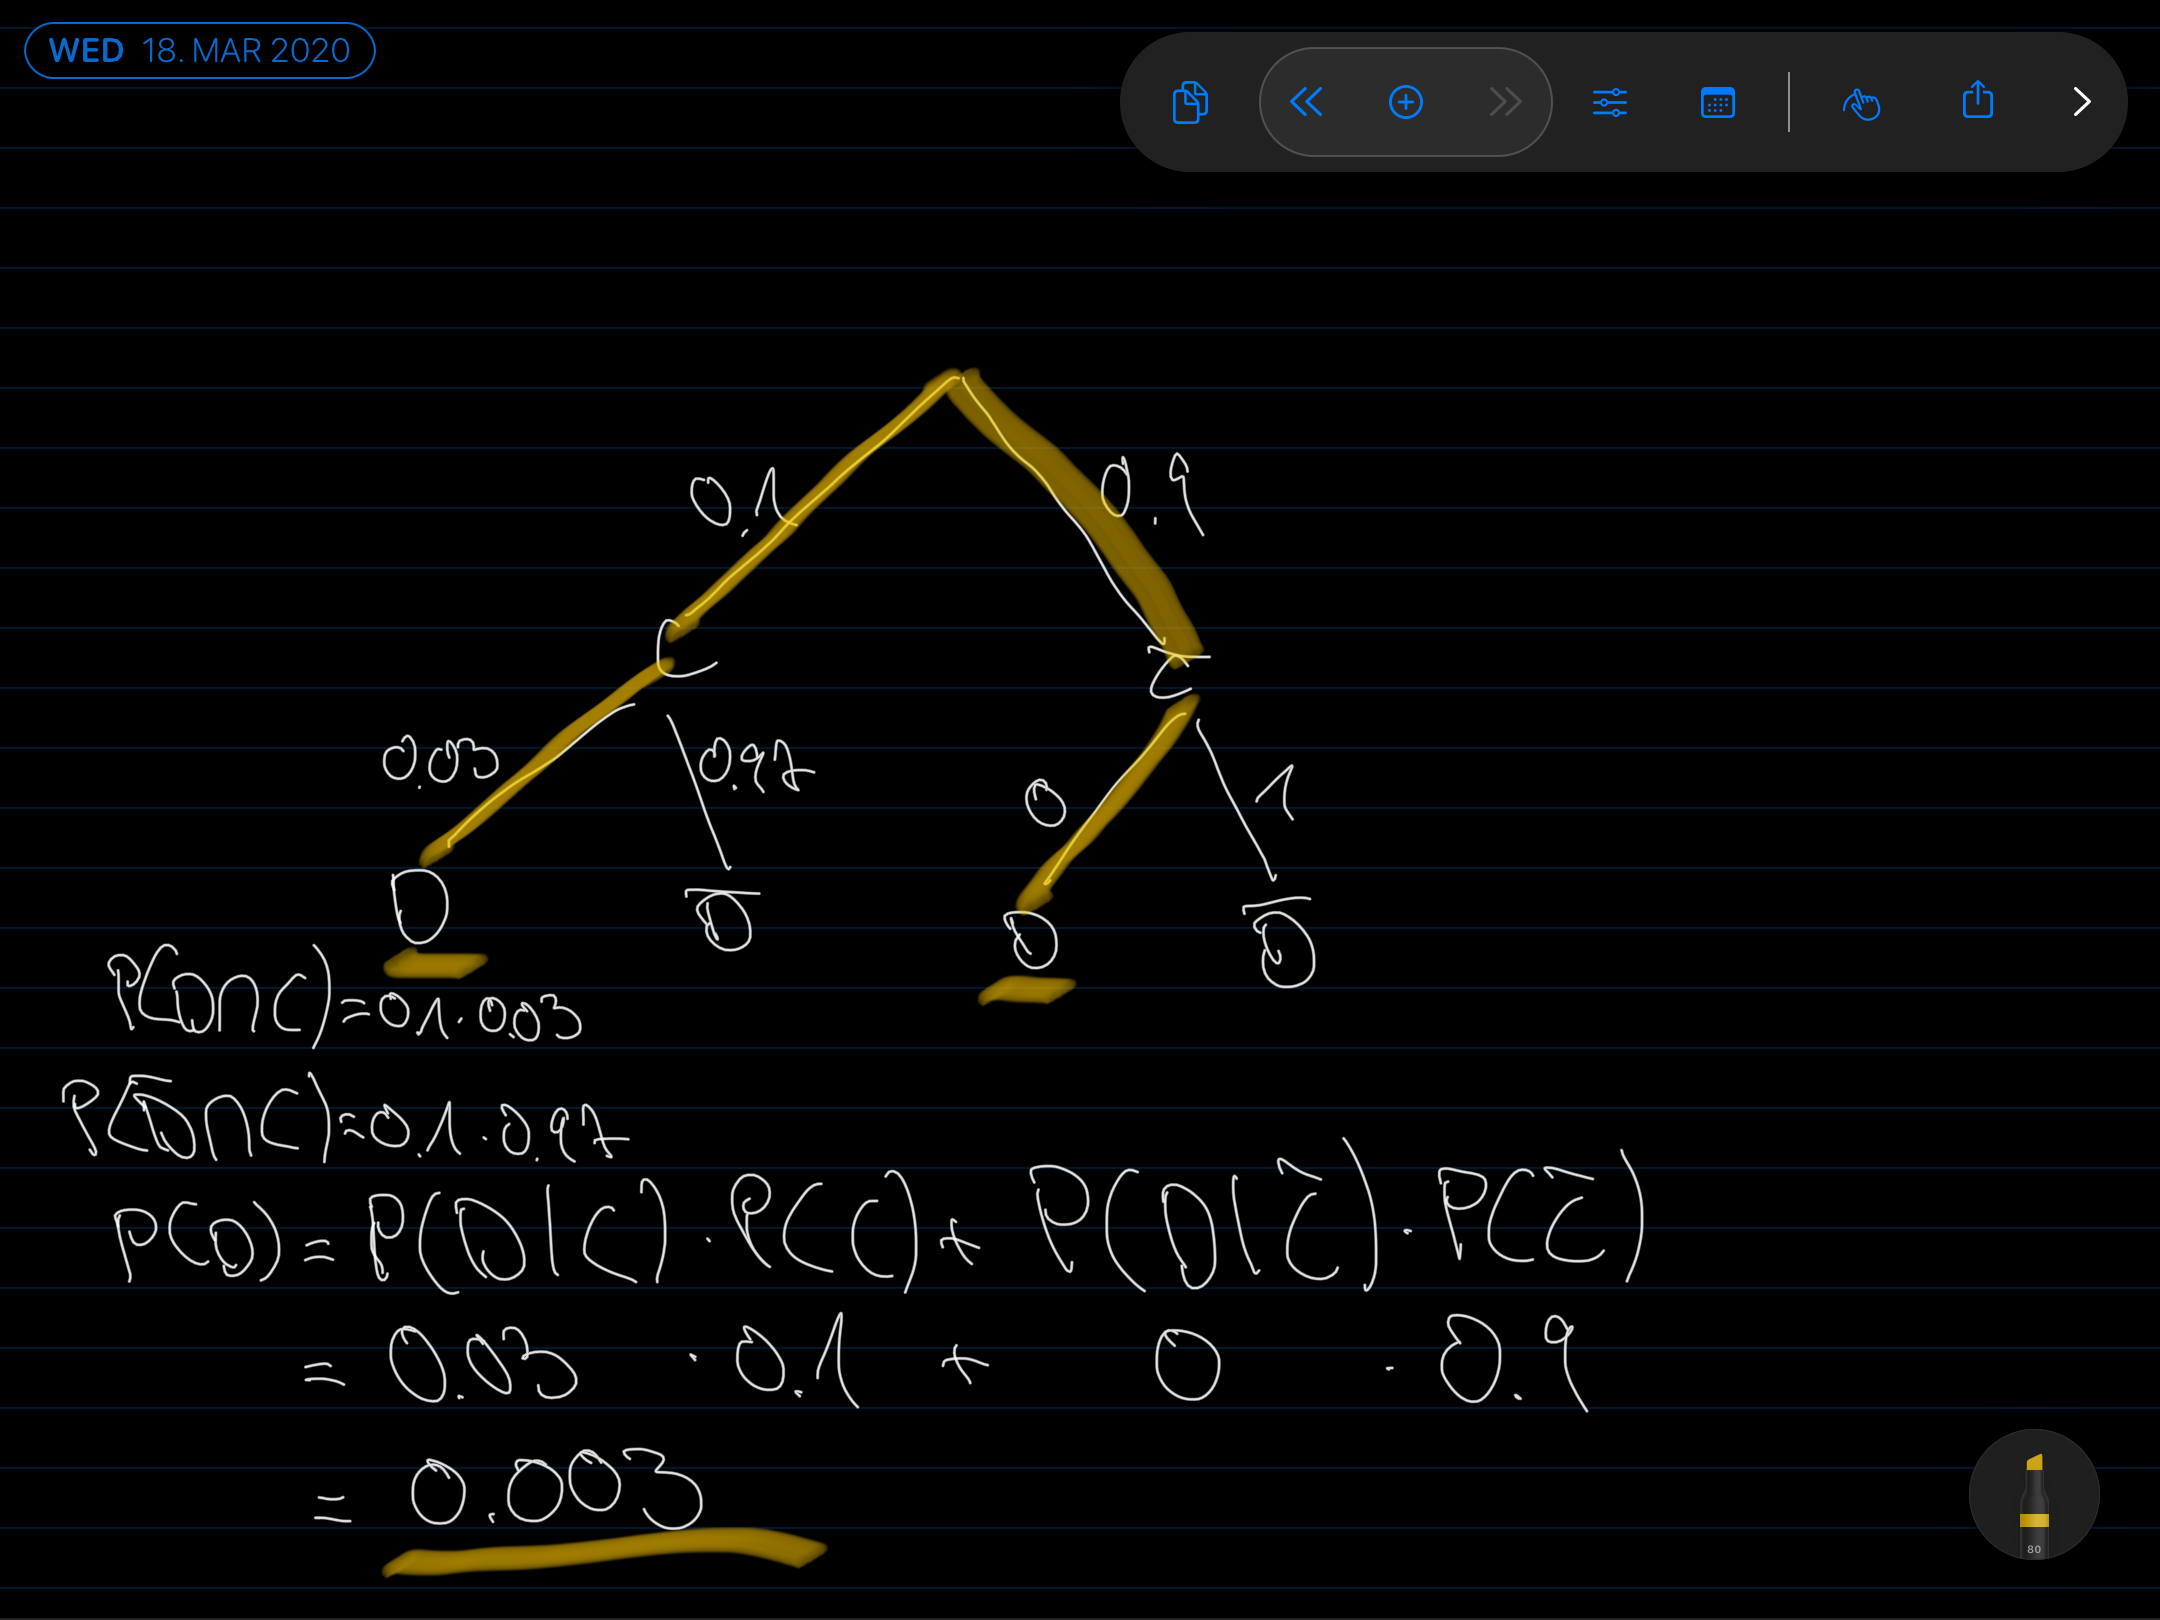 WED 18. MAR 2020
0.1 0.9
C C̅
0.03 0.97 0 1
D D̅ D D̅
P(D∩C)=0.1·0.03
P(D̅∩C)=0.1·0.97
P(D) = P(D|C)·P(C) + P(D|C̅)·P(C̅)
= 0.03 · 0.1 + 0 · 0.9
= 0.003
80